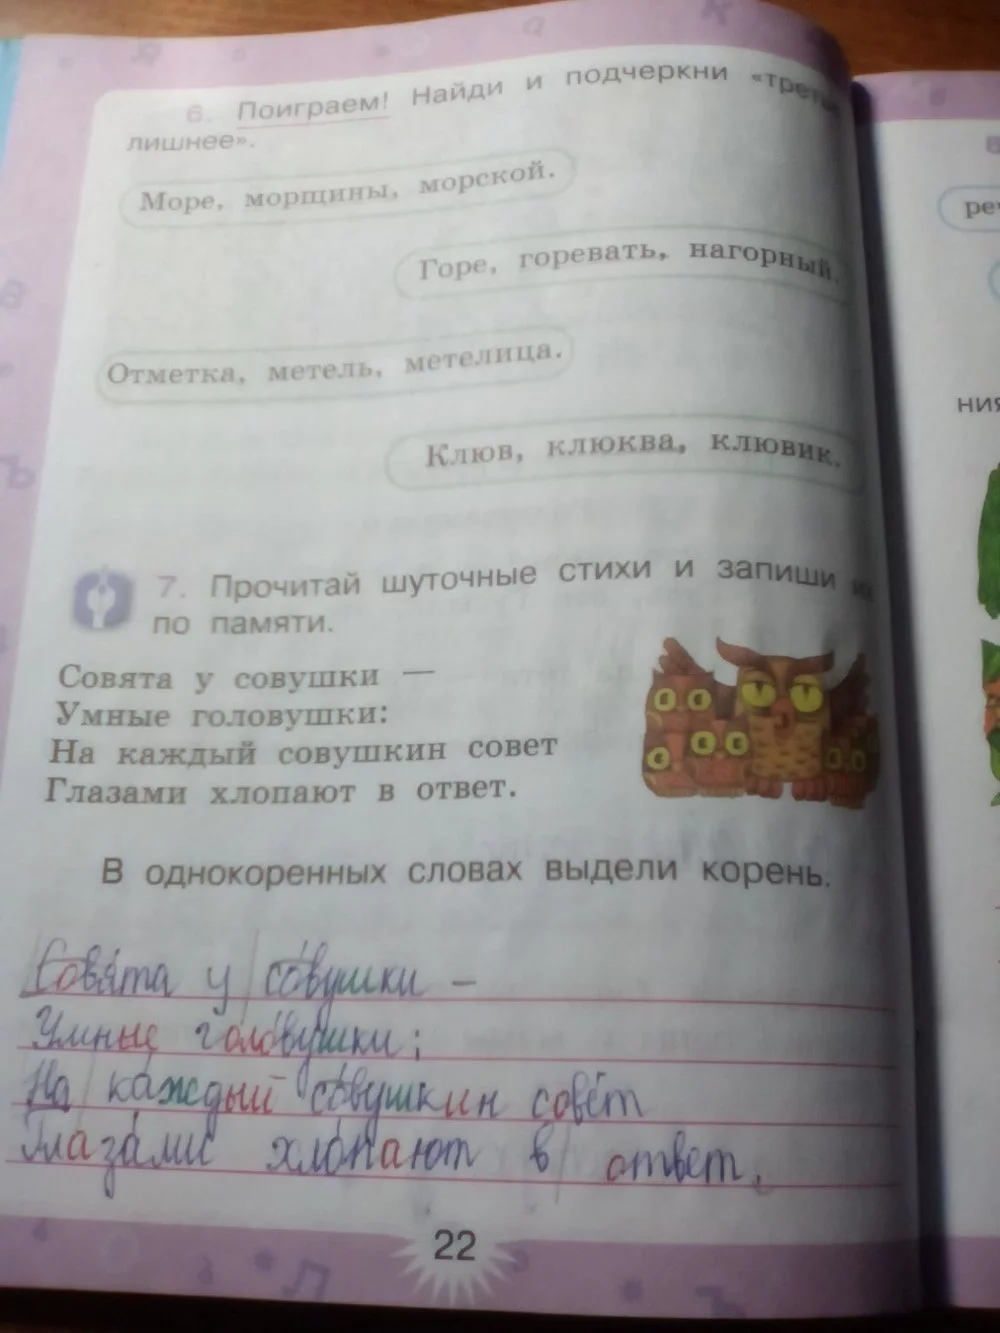 6. Поиграем! Найди и подчеркни «третье
лишнее».
Море, морщины, морской.
Горе, горевать, нагорный.
Отметка, метель, метелица.
Клюв, клюква, клювик.
7. Прочитай шуточные стихи и запиши их
по памяти.
Совята у совушки —
Умные головушки:
На каждый совушкин совет
Глазами хлопают в ответ.
В однокоренных словах выдели корень.
Совята у совушки –
Умные головушки:
На каждый совушкин совет
Глазами хлопают в ответ.
22
ния